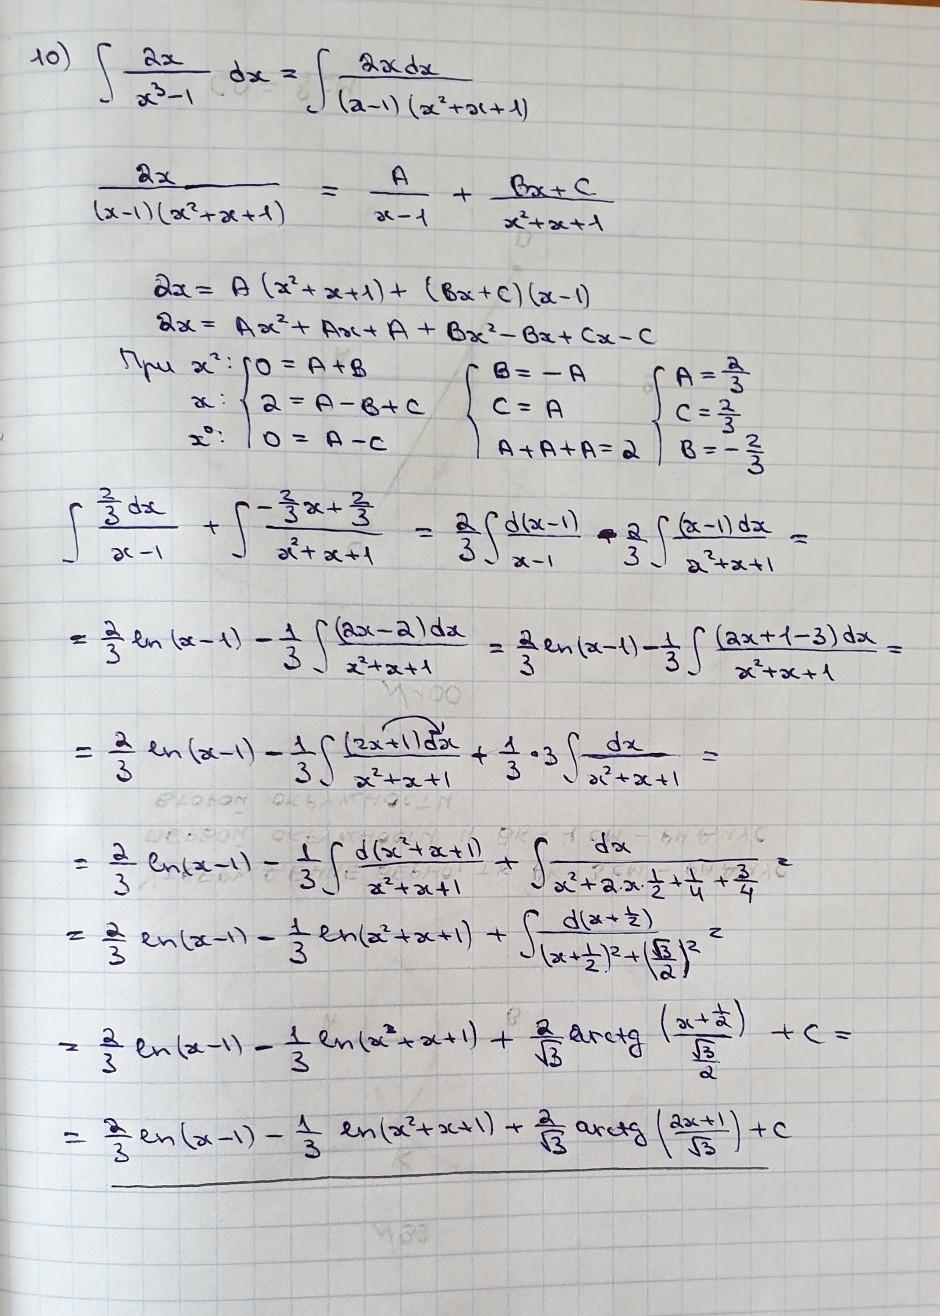 10) ∫ 2x/(x³-1) dx = ∫ 2xdx/((x-1)(x²+x+1))
2x/((x-1)(x²+x+1)) = A/(x-1) + (Bx+C)/(x²+x+1)
2x = A(x²+x+1) + (Bx+C)(x-1)
2x = Ax² + Ax + A + Bx² - Bx + Cx - C
При x²: { 0 = A+B { B = -A { A = 2/3
x: { 2 = A-B+C { C = A { C = 2/3
x⁰: { 0 = A-C { A+A+A = 2 { B = -2/3
∫ (2/3 dx)/(x-1) + ∫ (-2/3 x + 2/3)/(x²+x+1) = 2/3 ∫ d(x-1)/(x-1) - 2/3 ∫ (x-1)dx/(x²+x+1) =
= 2/3 ln(x-1) - 1/3 ∫ (2x-2)dx/(x²+x+1) = 2/3 ln(x-1) - 1/3 ∫ (2x+1-3)dx/(x²+x+1) =
= 2/3 ln(x-1) - 1/3 ∫ (2x+1)dx/(x²+x+1) + 1/3 · 3 ∫ dx/(x²+x+1) =
= 2/3 ln(x-1) - 1/3 ∫ d(x²+x+1)/(x²+x+1) + ∫ dx/(x²+2·x·1/2+1/4+3/4) =
= 2/3 ln(x-1) - 1/3 ln(x²+x+1) + ∫ d(x+1/2)/((x+1/2)²+(√3/2)²) =
= 2/3 ln(x-1) - 1/3 ln(x²+x+1) + 2/√3 arctg ((x+1/2)/(√3/2)) + C =
= 2/3 ln(x-1) - 1/3 ln(x²+x+1) + 2/√3 arctg ((2x+1)/√3) + C